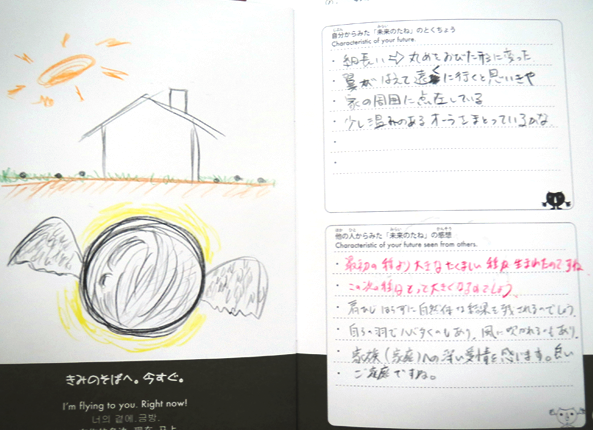 きみのそばへ。今すぐ。
I'm flying to you. Right now!
너의 곁에. 금방.
自分からみた「未来のたね」のとくちょう
Characteristic of your future.
・細長い⇒丸めておびた形に変った
・翼がはえて遠くに行くと思いきや
・家の周囲に点在している
・少し温かみのあるオーラをまとっているかな
他の人からみた「未来のたね」の感想
Characteristic of your future seen from others.
・最初の種より大きなたくましい種が生まれたのですね
・この次の種はもっと大きくなるでしょう。
・肩 はらずに自然体 結果を残されるのでしょう。
・自らの羽でハバタくのもあり、風に吹かれるもあり、
・家族(家庭)への深い愛情を感じます。良い
・ご家庭ですね。